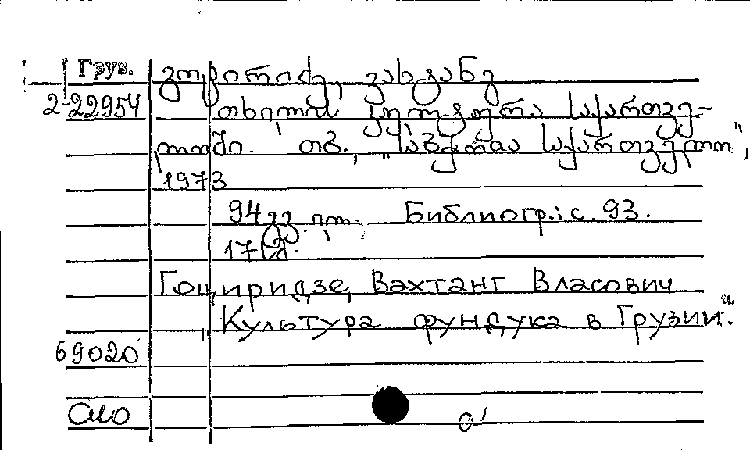 Груз. გოცირიძე, ვახტანგ
2-22954 თხილის კულტურა საქართვე-
ლოში. თბ., „საბჭოთა საქართველო",
1973
94 გვ. ილ. Библиогр.: с. 93.
17 კ.
Гоциридзе, Вахтанг Власович
Культура фундука в Грузии."
69020